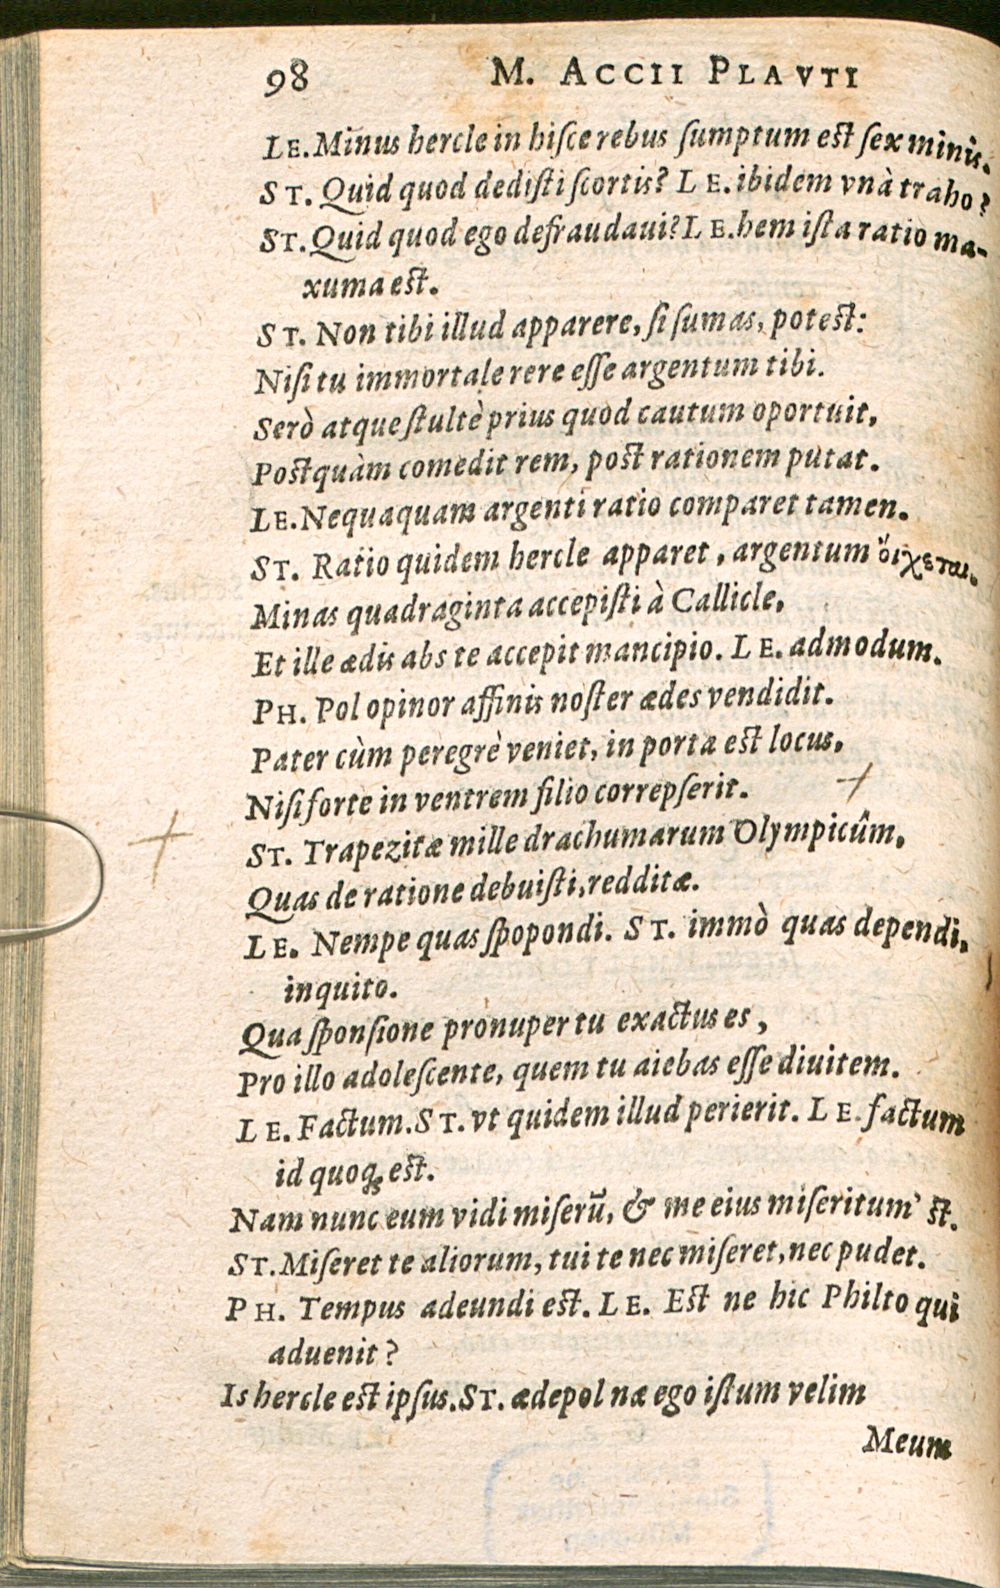 98 M. ACCII PLAVTI
LE. Minus hercle in hiſce rebus ſumptum eſt ſex minis.
ST. Quid quod dediſti ſcortis? LE. ibidem vnà traho?
ST. Quid quod ego defraudaui? LE. hem iſta ratio ma-
xuma eſt.
ST. Non tibi illud apparere, ſi ſumas, poteſt:
Niſi tu immortale rere eſſe argentum tibi.
Serò atque ſtultè prius quod cautum oportuit,
Poſtquàm comedit rem, poſt rationem putat.
LE. Nequaquam argenti ratio comparet tamen.
ST. Ratio quidem hercle apparet, argentum οἴχεται.
Minas quadraginta accepiſti à Callicle,
Et ille ædis abs te accepit mancipio. LE. admodum.
PH. Pol opinor affinis noſter ædes vendidit.
Pater cùm peregrè veniet, in porta eſt locus,
Niſi forte in ventrem filio correpſerit.
ST. Trapezitæ mille drachumarum Olympicûm,
Quas de ratione debuiſti, redditæ.
LE. Nempe quas ſpopondi. ST. immò quas dependi,
inquito.
Qua ſponſione pronuper tu exactus es,
Pro illo adoleſcente, quem tu aiebas eſſe diuitem.
LE. Factum. ST. vt quidem illud perierit. LE. factum
id quoq; eſt.
Nam nunc eum vidi miſerũ, & me eius miſeritum' ſt.
ST. Miſeret te aliorum, tui te nec miſeret, nec pudet.
PH. Tempus adeundi eſt. LE. Eſt ne hic Philto qui
aduenit?
Is hercle eſt ipſus. ST. ædepol næ ego iſtum velim
Meum